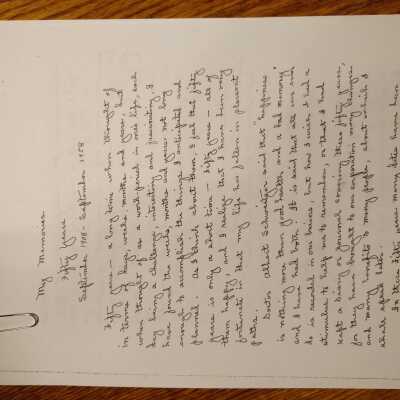 My Memories
Fifty Years
September 1908 - September 1958
Fifty years - a long time when thought of
in terms of days, weeks, months and years, but
when thought of as a work period in one's life, each
day being a challenge, interesting and fascinating, I
have found the weeks, months and years not long
enough to accomplish the things anticipated and
planned. As I think about them I feel that fifty
years is only a short time - fifty years - all of
them happy, and I realize that I have been very
fortunate in that my life has fallen in pleasant
paths.
Doctor Albert Schweitzer said that "happiness
is nothing more than good health and a bad memory"
and I have had both. It is said that all we see and
do is recorded in our brains, but how I wish I had a
stimulus to help me to remember, or that I had
kept a diary or journal covering these fifty years,
for they have brought to our organization many changes
and many insights to many people, about which I
shall speak later.
In these fifty years many dates have been